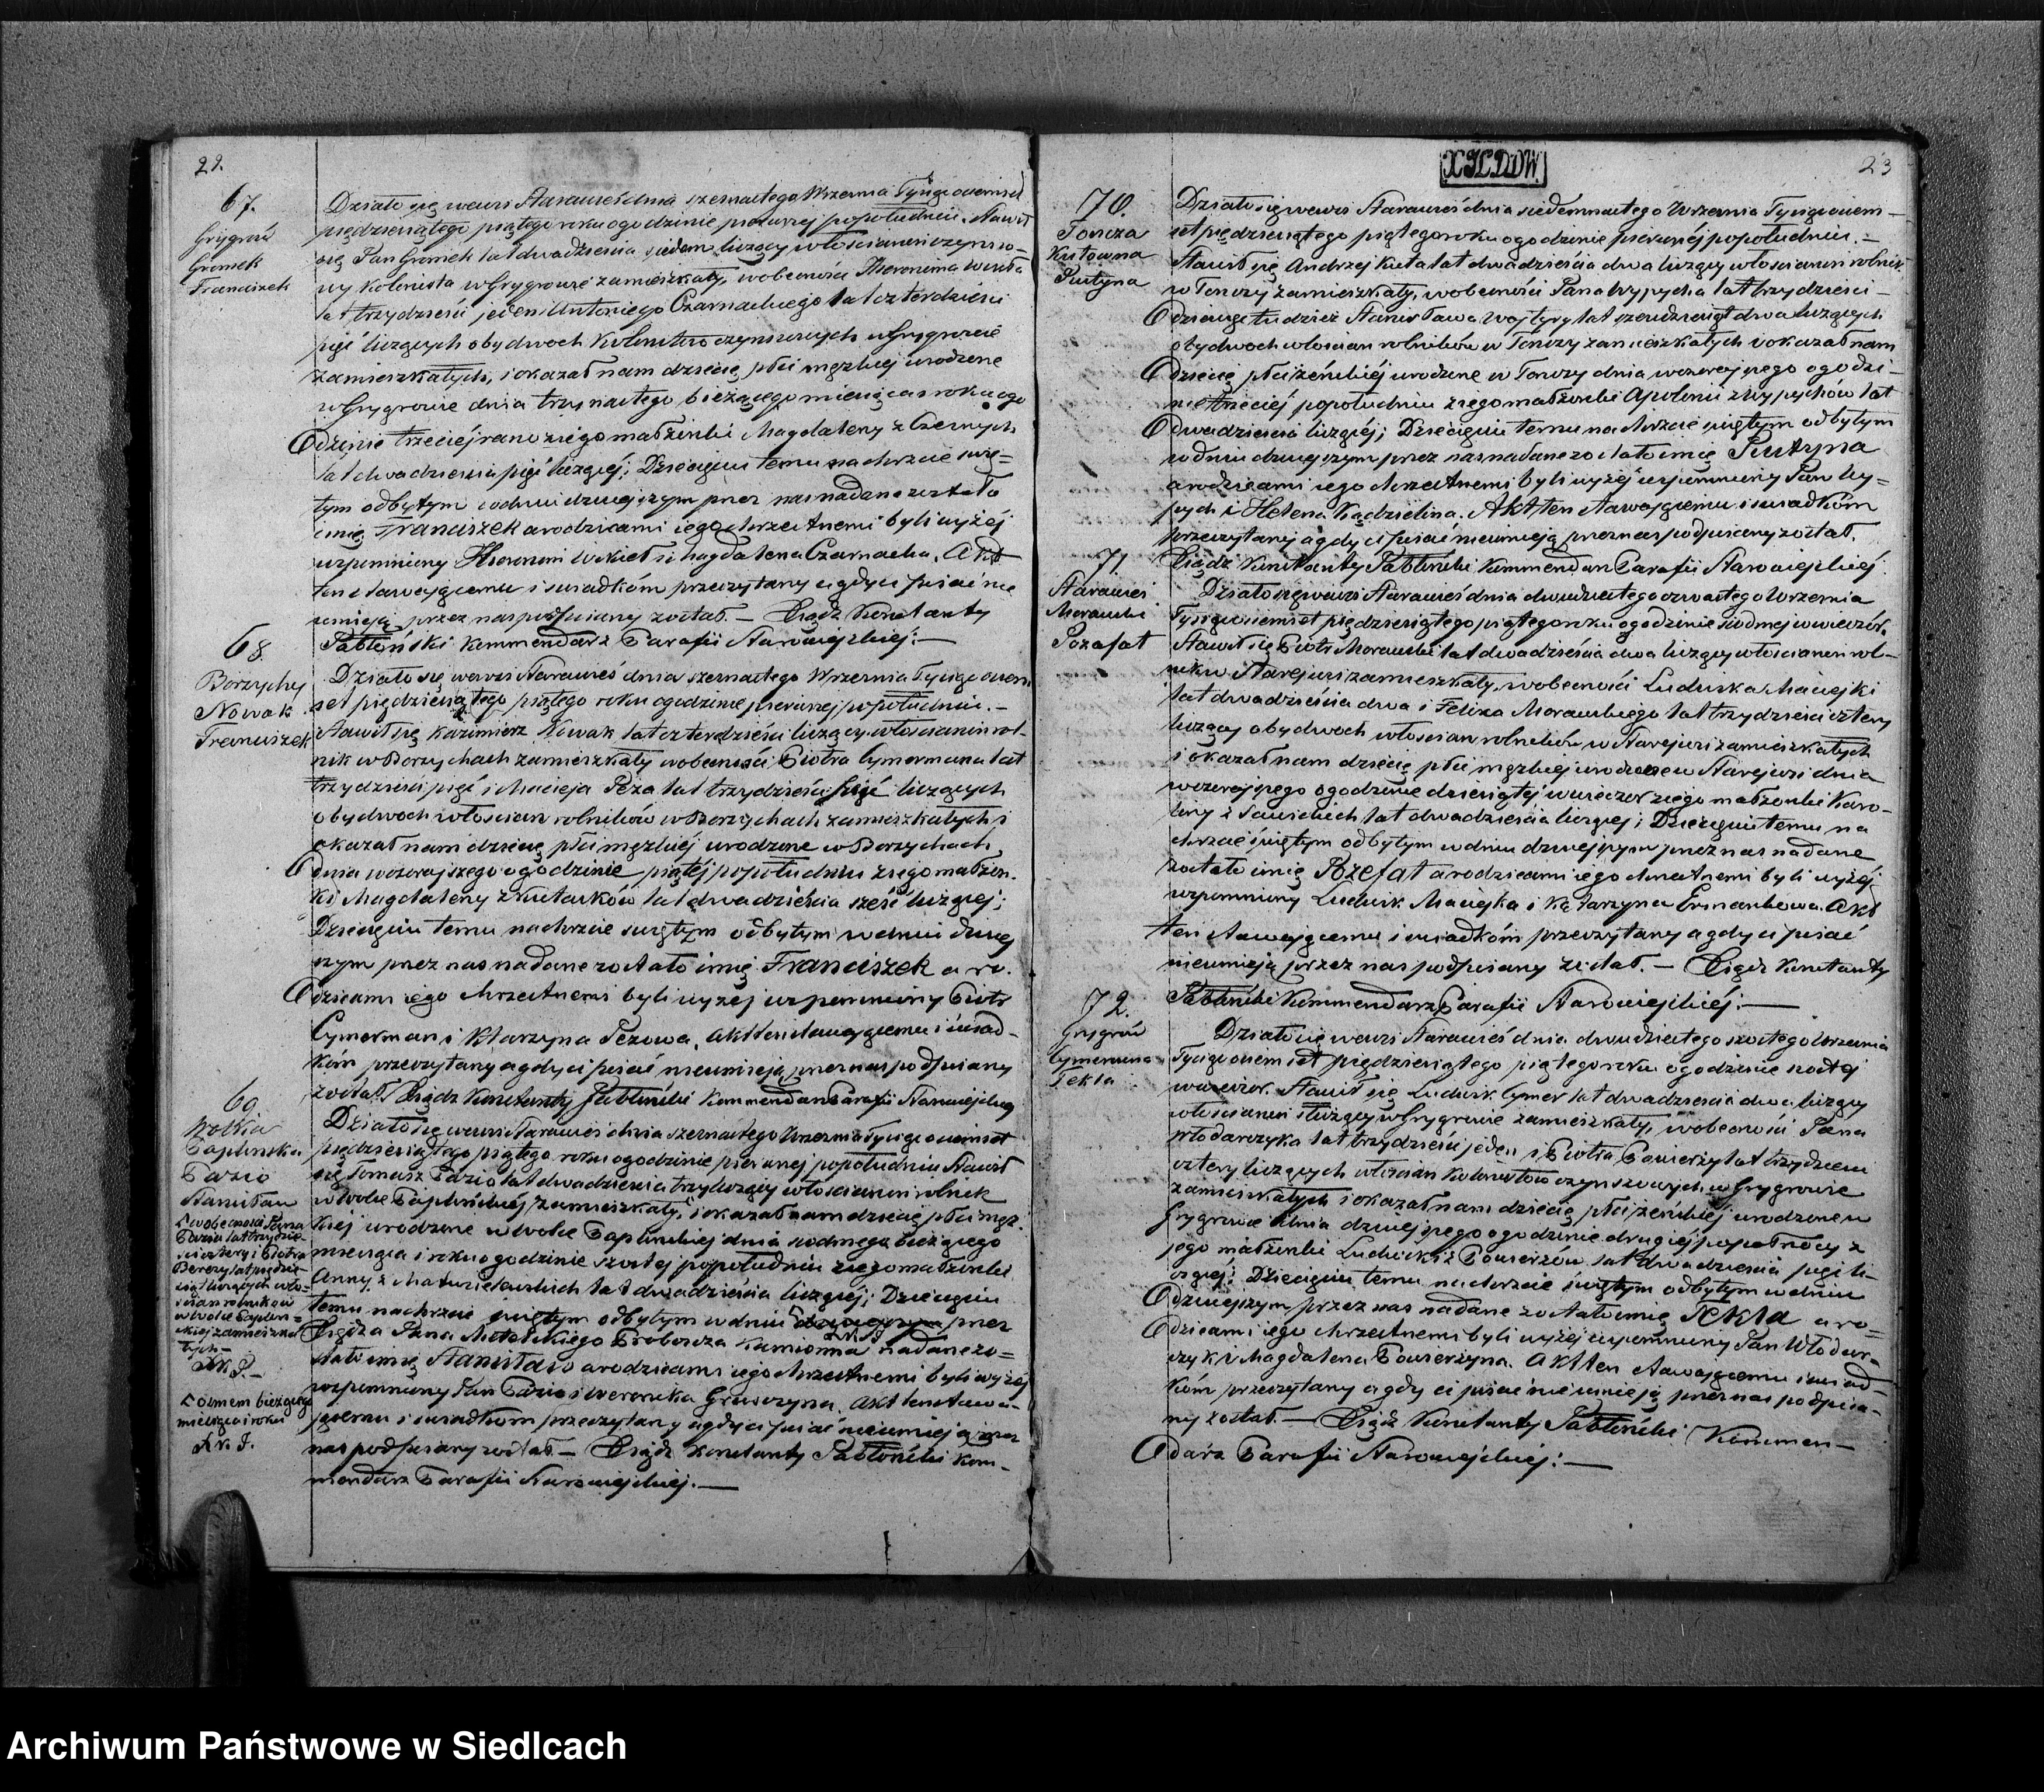 22.
67.
Grygrów
Gromek
Franciszek
Działo się wewsi Starawieś dnia szesnastego Września Tysiąc ośmset
pięćdziesiątego piątego roku o godzinie pierwszej popołudniu. Stawił
się Jan Gromek lat dwadzieścia siedem liczący włościanin czynszo-
wy kolonista w Grygrowie zamieszkały, wobecności Hieronima
lat trzydzieści jeden i Antoniego Czarnackiego lat czterdzieści
pięć liczących obydwoch kolonistów czynszowych w Grygrowie
zamieszkałych, i okazał nam dziecię płci męzkiej urodzone
w Grygrowie dnia trzynastego bieżącego miesiąca i roku o go
dzinie trzeciej rano z iego małżonki Magdaleny z Czernych
lat dwadzieścia pięć liczącej; Dziecięciu temu na chrzcie świę=
tym odbytym w dniu dzisiejszym przez nas nadane zostało
imię Franciszek a rodzicami iego chrzestnemi byli wyżej
wspomniony Hieronim i Magdalena Czarnacka. Akt
ten stawającemu i świadkóm przeczytany a gdy ci pisać nie
umieją przez nas podpisany został. — Xiądz Konstanty
Jabłoński Kommendarz Parafii Starowiejskiej: —
68.
Borzychy
Nowak
Franciszek
Działo się wewsi Starawieś dnia szesnastego Września Tysiąc ośm
set pięćdziesiątego piątego roku o godzinie pierwszej popołudniu. —
Stawił się Kazimierz Nowak lat czterdzieści liczący włościanin rol-
nik w Borzychach zamieszkały wobecności Piotra Cymermana lat
trzydzieści pięć i Macieja Peza lat trzydzieści pięć liczących
obydwoch włościan rolników w Borzychach zamieszkałych i
okazał nam dziecię płci męzkiej urodzone w Borzychach
dnia wczorajszego o godzinie piątej popołudniu z iego małżon-
ki Magdaleny z Kutarków lat dwadzieścia sześć liczącej;
Dziecięciu temu na chrzcie świętym odbytym w dniu dzisiej
szym przez nas nadane zostało imię Franciszek a ro-
dzicami iego chrzestnemi byli wyżej wspomniony Piotr
Cymerman i Katarzyna Pezowa. Akt ten stawającemu i świad-
kóm przeczytany a gdy ci pisać nieumieją przez nas podpisany
został. Xiądz Konstanty Jabłoński Kommendarz Parafii Starowiejskiej
69
Wolka
Paplinska
Pazio
Stanisław
i wobecności Jana
Pazia lat trzydzie-
ści cztery i Piotra
Berezy lat pięćdzie-
siąt liczących wło-
ścian rolników
w Wolce Paplin-
skiej zamieszka-
łych —
X.K.J. —
ósmem bieżącego
miesiąca i roku
X.K.J.
Działo się wewsi Starawieś dnia szesnastego Września Tysiąc ośmset
pięćdziesiątego piątego roku o godzinie pierwszej popołudniu Stawił
się Tomasz Pazio lat dwadzieścia trzy liczący włościanin rolnik
w Wolce Paplińskiej zamieszkały, i okazał nam dziecię płci męz-
kiej urodzone w Wolce Paplińskiej dnia siodmego bieżącego
miesiąca i roku o godzinie szóstej popołudniu z iego małżonki
Anny z lat dwadzieścia liczącej; Dziecięciu
temu na chrzcie świętym odbytym w dniu dzisiejszym przez
Xiędza Jana Proboszcza Kamionna nadane zo=
stało imię Stanisław a rodzicami iego chrzestnemi byli wyżej
wspomniony Jan Pazio i Weronika. Akt ten stawa-
jącemu i świadkóm przeczytany a gdy ci pisać nieumieją przez
nas podpisany został — Xiądz Konstanty Jabłoński Kom-
mendarz Parafii Starowiejskiej. —
23
70.
Toncza
Kutowna
Justyna
Działo się wewsi Starawieś dnia siedemnastego Września Tysiąc ośm-
set pięćdziesiątego piątego roku o godzinie pierwszej popołudniu. —
Stawił się Andrzej Kuta lat dwadzieścia dwa liczący włościanin rolnik
w Tonczy zamieszkały, wobecności Jana Wypycha lat trzydzieści
tudzież Stanisława Wojtyry lat sześćdziesiąt dwa liczących
obydwoch włościan rolników w Tonczy zamieszkałych i okazał nam
dziecię płci żeńskiej urodzone w Tonczy dnia wczorajszego o godzi-
nie trzeciej popołudniu z iego małżonki Apolonii z Wypychów lat
dwadzieścia liczącej; Dziecięciu temu na chrzcie świętym odbytym
w dniu dzisiejszym przez nas nadane zostało imię Justyna
a rodzicami iego chrzestnemi byli wyżej wspomniony Jan Wy=
pych i Helena Kądzielina. Akt ten stawającemu i świadkóm
przeczytany a gdy ci pisać nieumieją przez nas podpisany został.
Xiądz Konstanty Jabłoński Kommendarz Parafii Starowiejskiej
71.
Starawieś
Morawski
Jozafat
Działo się wewsi Starawieś dnia dwudziestego czwartego Września
Tysiąc ośmset pięćdziesiątego piątego roku o godzinie siodmej wwieczór.
Stawił się Piotr Morawski lat dwadzieścia dwa liczący włościanin rol-
nik w Starejwsi zamieszkały, wobecności Ludwika Maciejki
lat dwadzieścia dwa i Felixa Morawskiego lat trzydzieści cztery
liczący obydwoch włościan rolników w Starejwsi zamieszkałych
i okazał nam dziecię płci męzkiej urodzone w Starejwsi dnia
wczorajszego o godzinie dziesiątej wwieczór z iego małżonki Karo-
liny z Sawickich lat dwadzieścia liczącej; Dziecięciu temu na
chrzcie świętym odbytym w dniu dzisiejszym przez nas nadane
zostało imię Jozefat a rodzicami iego chrzestnemi byli wyżej
wspomniony Ludwik Maciejka i Katarzyna. Akt
ten stawającemu i świadkóm przeczytany a gdy ci pisać
nieumieją przez nas podpisany został. — Xiądz Konstanty
Jabłoński Kommendarz Parafii Starowiejskiej: —
72.
Grygrów
Cymerowna
Tekla
Działo się wewsi Starawieś dnia dwudziestego szóstego Września
Tysiąc ośmset pięćdziesiątego piątego roku o godzinie szóstej
wwieczór. Stawił się Ludwik Cymer lat dwadzieścia dwa liczący
włościanin służący w Grygrowie zamieszkały, wobecności Jana
Włodarczyka lat trzydzieści jeden i Piotra lat trzydzieści
cztery liczących włościan kolonistów czynszowych w Grygrowie
zamieszkałych i okazał nam dziecię płci żeńskiej urodzone w
Grygrowie dnia dzisiejszego o godzinie drugiej popółnocy z
jego małżonki Ludwiki z lat dwadzieścia pięć li-
czącej; Dziecięciu temu na chrzcie świętym odbytym w dniu
dzisiejszym przez nas nadane zostało imię Tekla a ro=
dzicami iego chrzestnemi byli wyżej wspomniony Jan Włodar-
czyk i Magdalena. Akt ten stawającemu i świad-
kóm przeczytany a gdy ci pisać nieumieją przez nas podpisa-
ny został. — Xiądz Konstanty Jabłoński Kommen-
darz Parafii Starowiejskiej: —
Archiwum Państwowe w Siedlcach